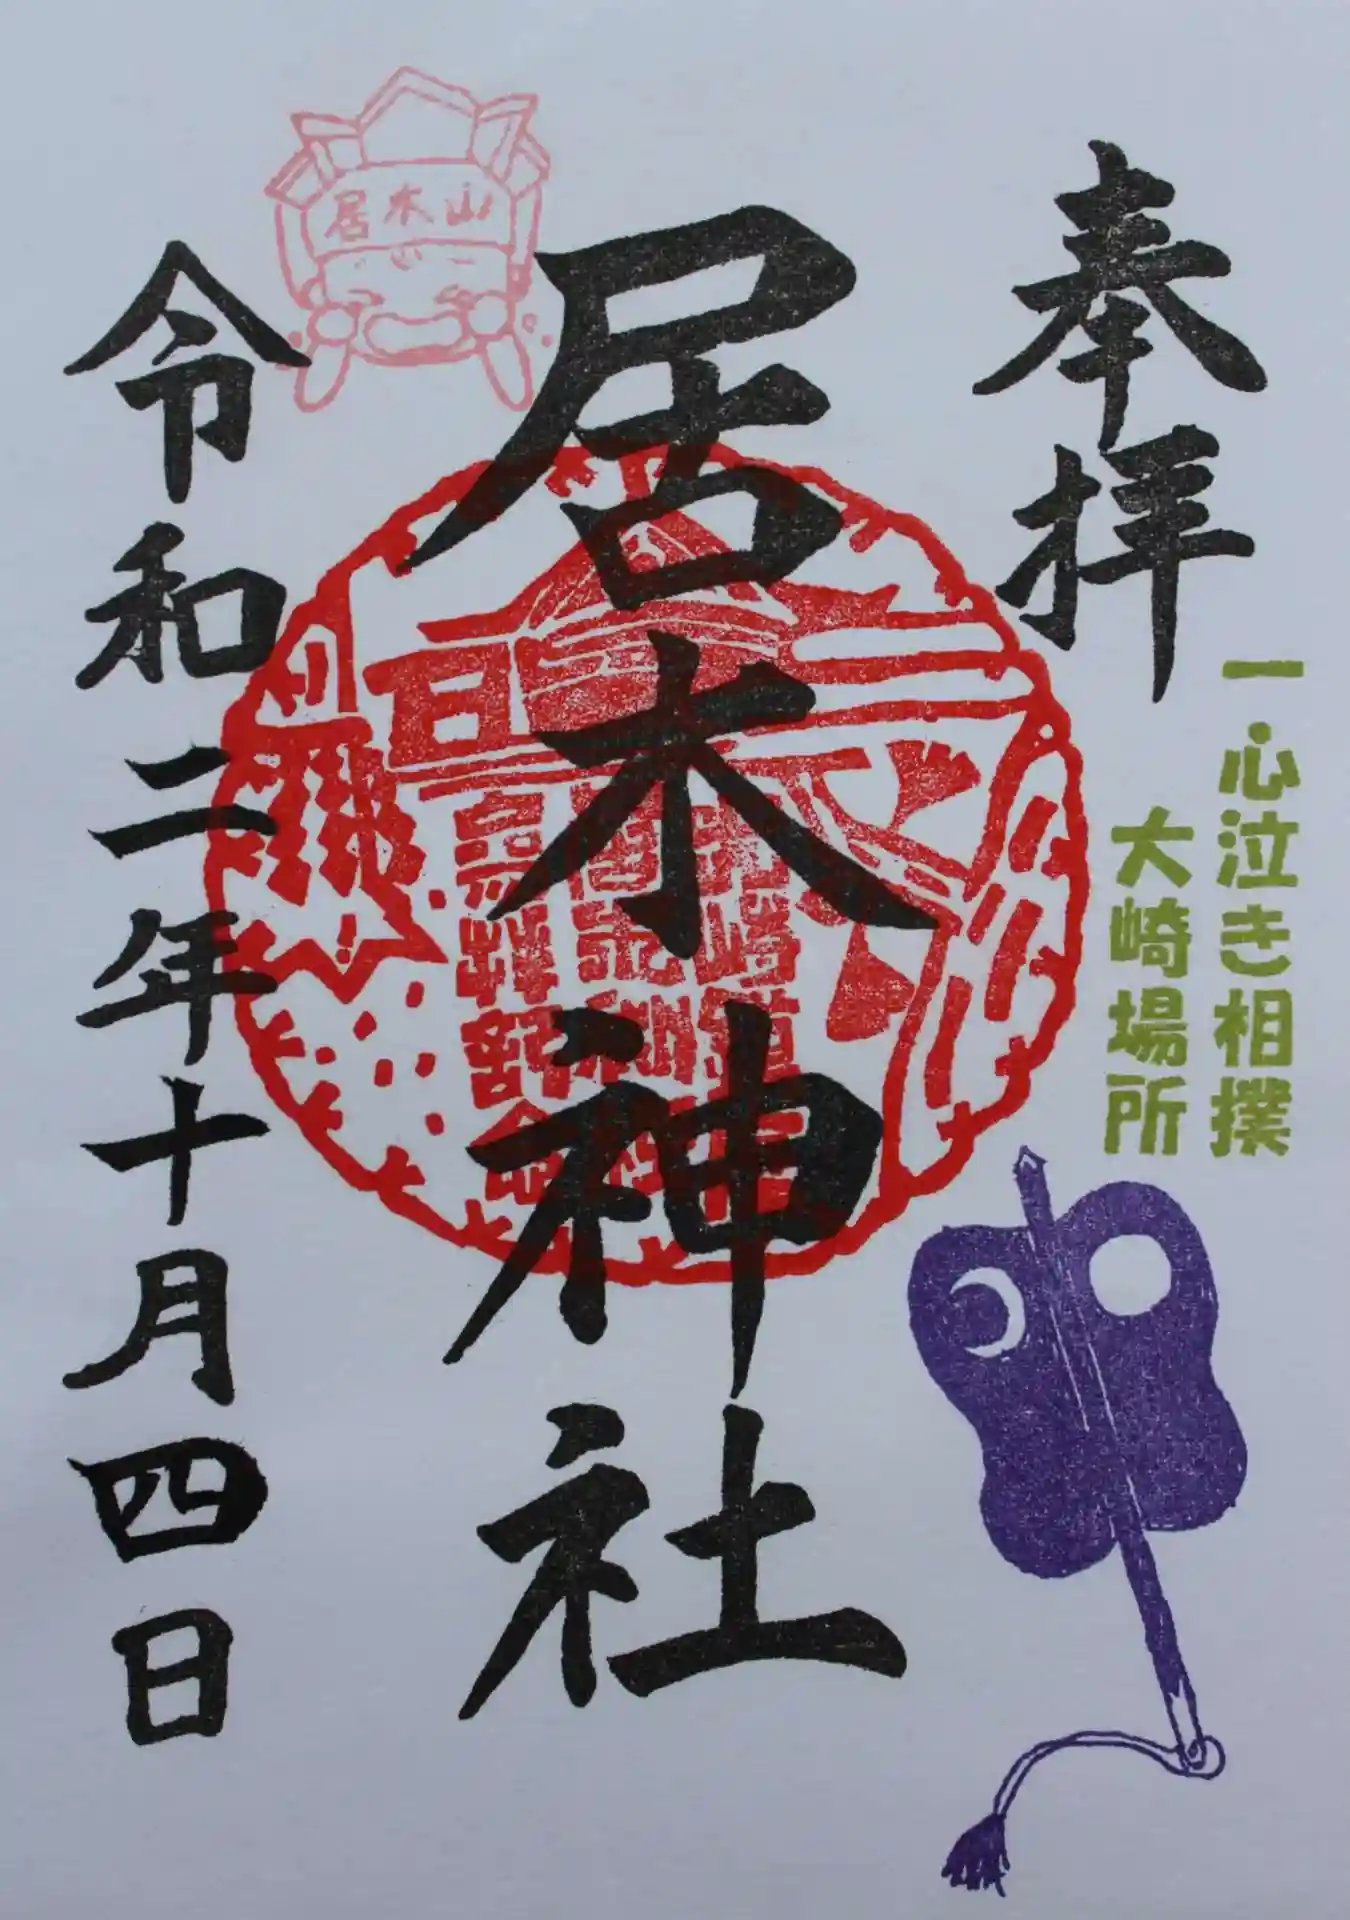 奉拝
一心泣き相撲
大崎場所
居木神社
居木山
令和二年十月四日